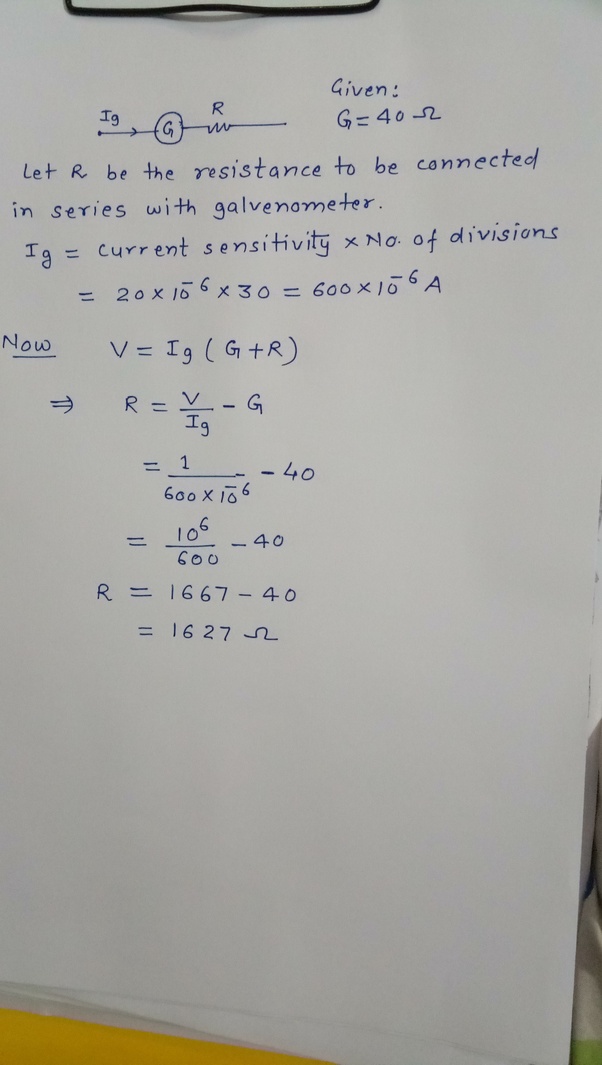 Given:
Ig G R G = 40 Ω
Let R be the resistance to be connected
in series with galvenometer.
Ig = current sensitivity × No. of divisions
= 20 × 10⁻⁶ × 30 = 600 × 10⁻⁶ A
Now V = Ig ( G + R )
⇒ R = V/Ig - G
= 1/(600 × 10⁻⁶) - 40
= 10⁶/600 - 40
R = 1667 - 40
= 1627 Ω